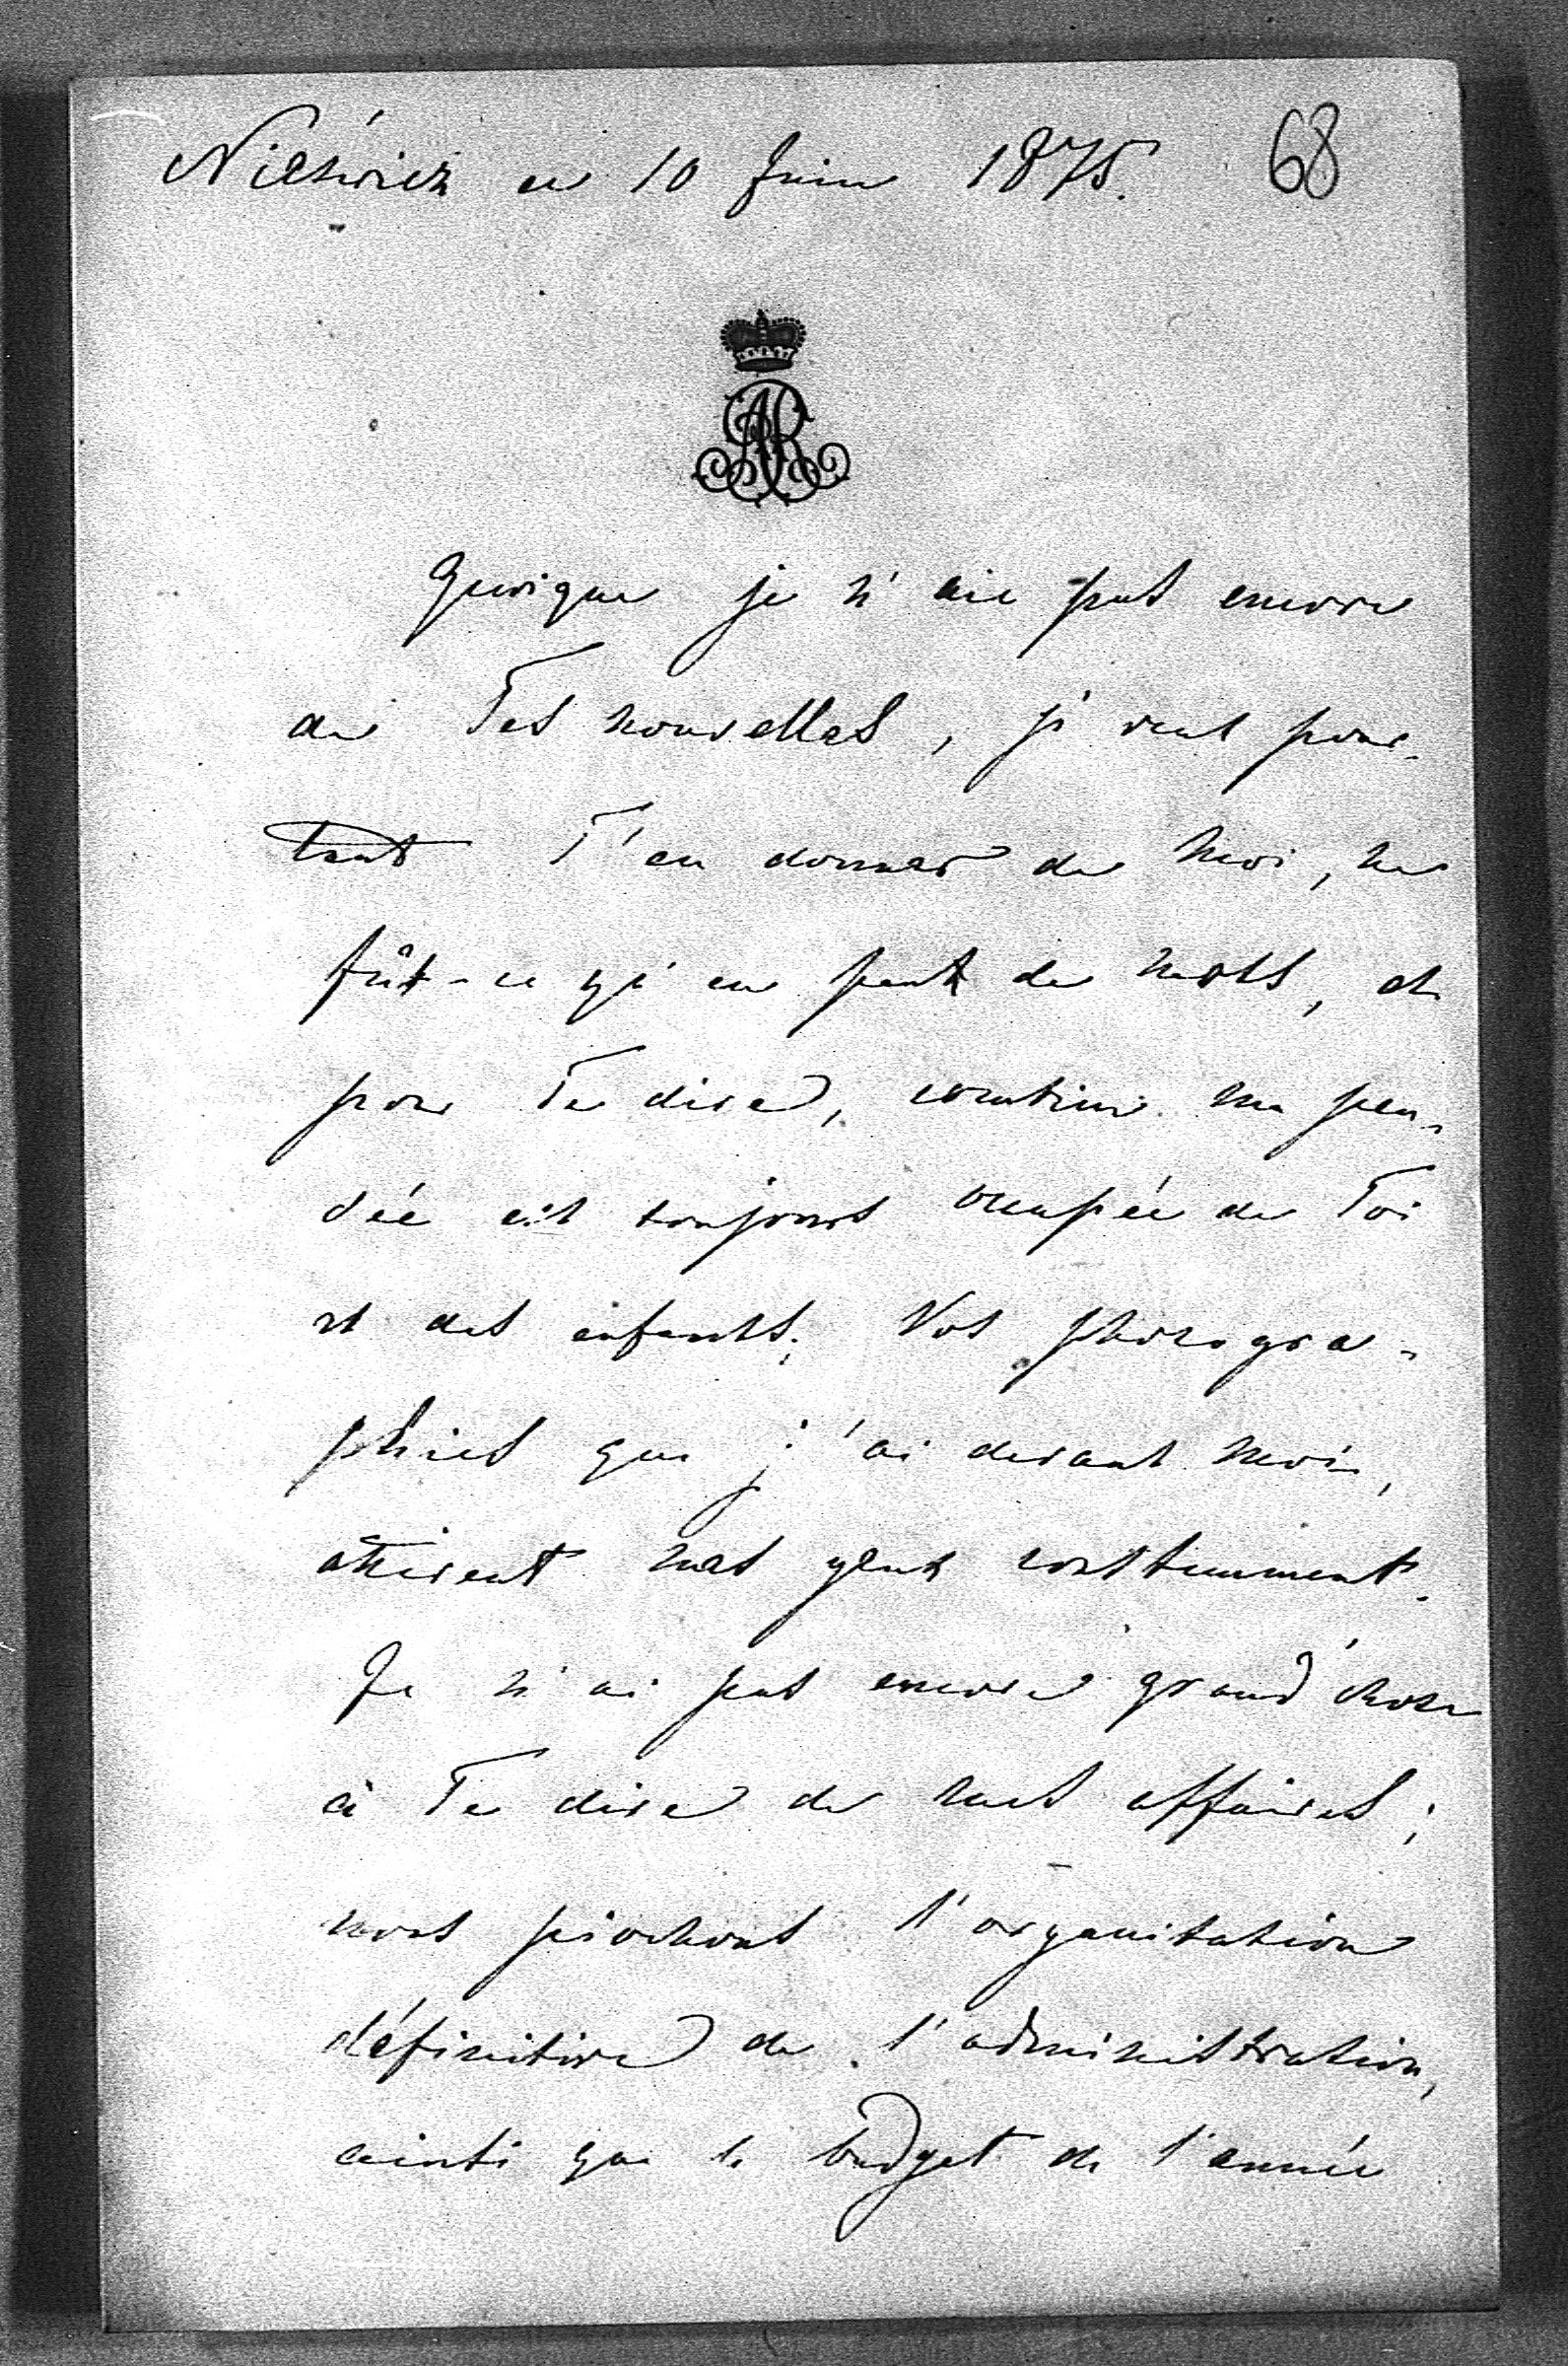 Nieświez ce 10 Juin 1875. 68
AR
Quoique je n'aie pas encore
de Tes nouvelles, je veux pour-
tant T'en donner de moi, ne
fût-ce qu'en peu de mots, et
pour Te dire, combien ma pen-
sée est toujours occupée de Toi
et des enfants. Vos photogra-
phies que j'ai devant moi,
attirent mes yeux constamment.
Je n'ai pas encore grand'chose
à Te dire de mes affaires;
nous piochons l'organisation
définitive de l'administration,
ainsi que le budget de l'année